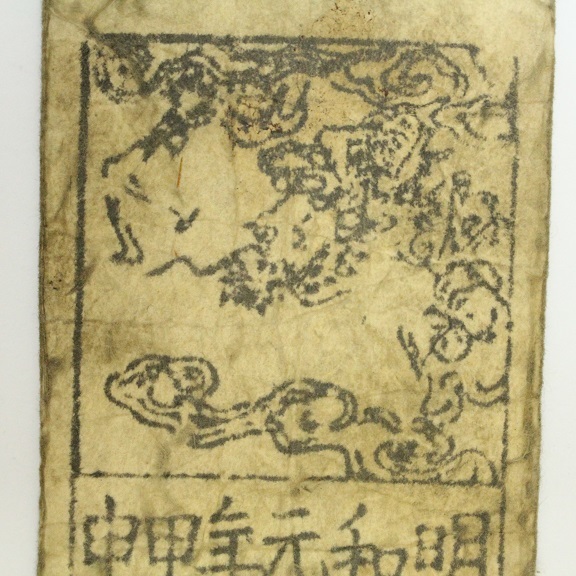 明和元年甲申